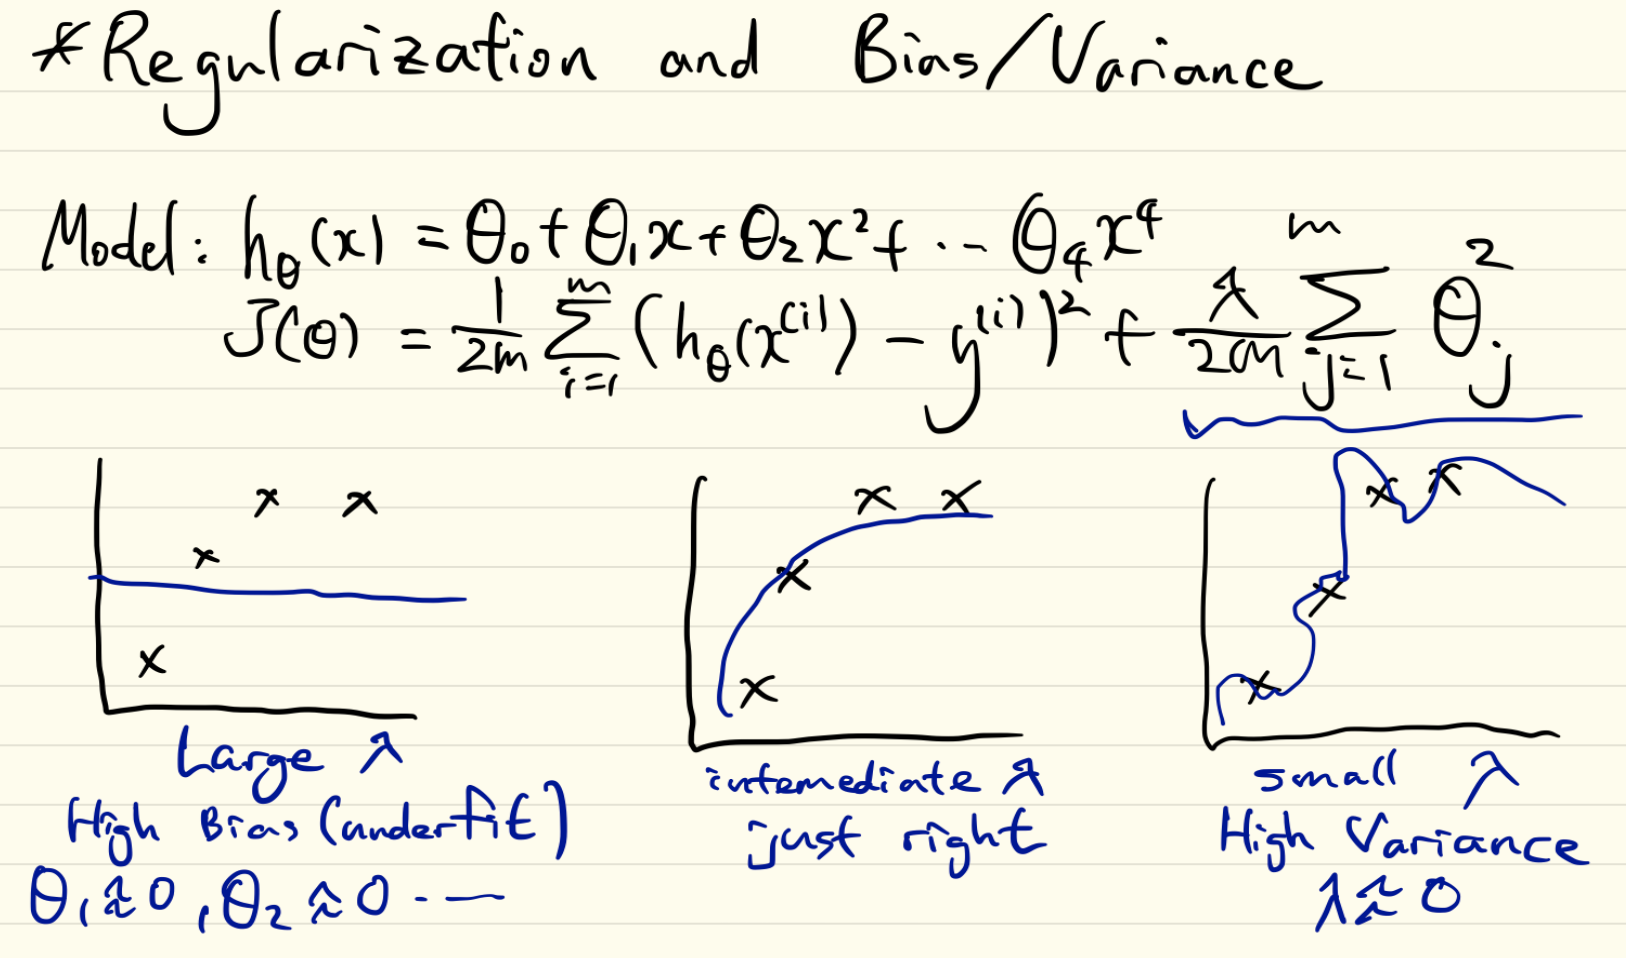 *Regularization and Bias/Variance
Model: hθ(x) = θ₀ + θ₁x + θ₂x² + ... θ₄x⁴
J(θ) = 1/2m Σᵢ₌₁ᵐ (hθ(x⁽ⁱ⁾) - y⁽ⁱ⁾)² + λ/2m Σⱼ₌₁ᵐ θⱼ²
Large λ
High Bias (underfit)
θ₁ ≈ 0, θ₂ ≈ 0 ...
intemediate λ
just right
small λ
High Variance
λ ≈ 0